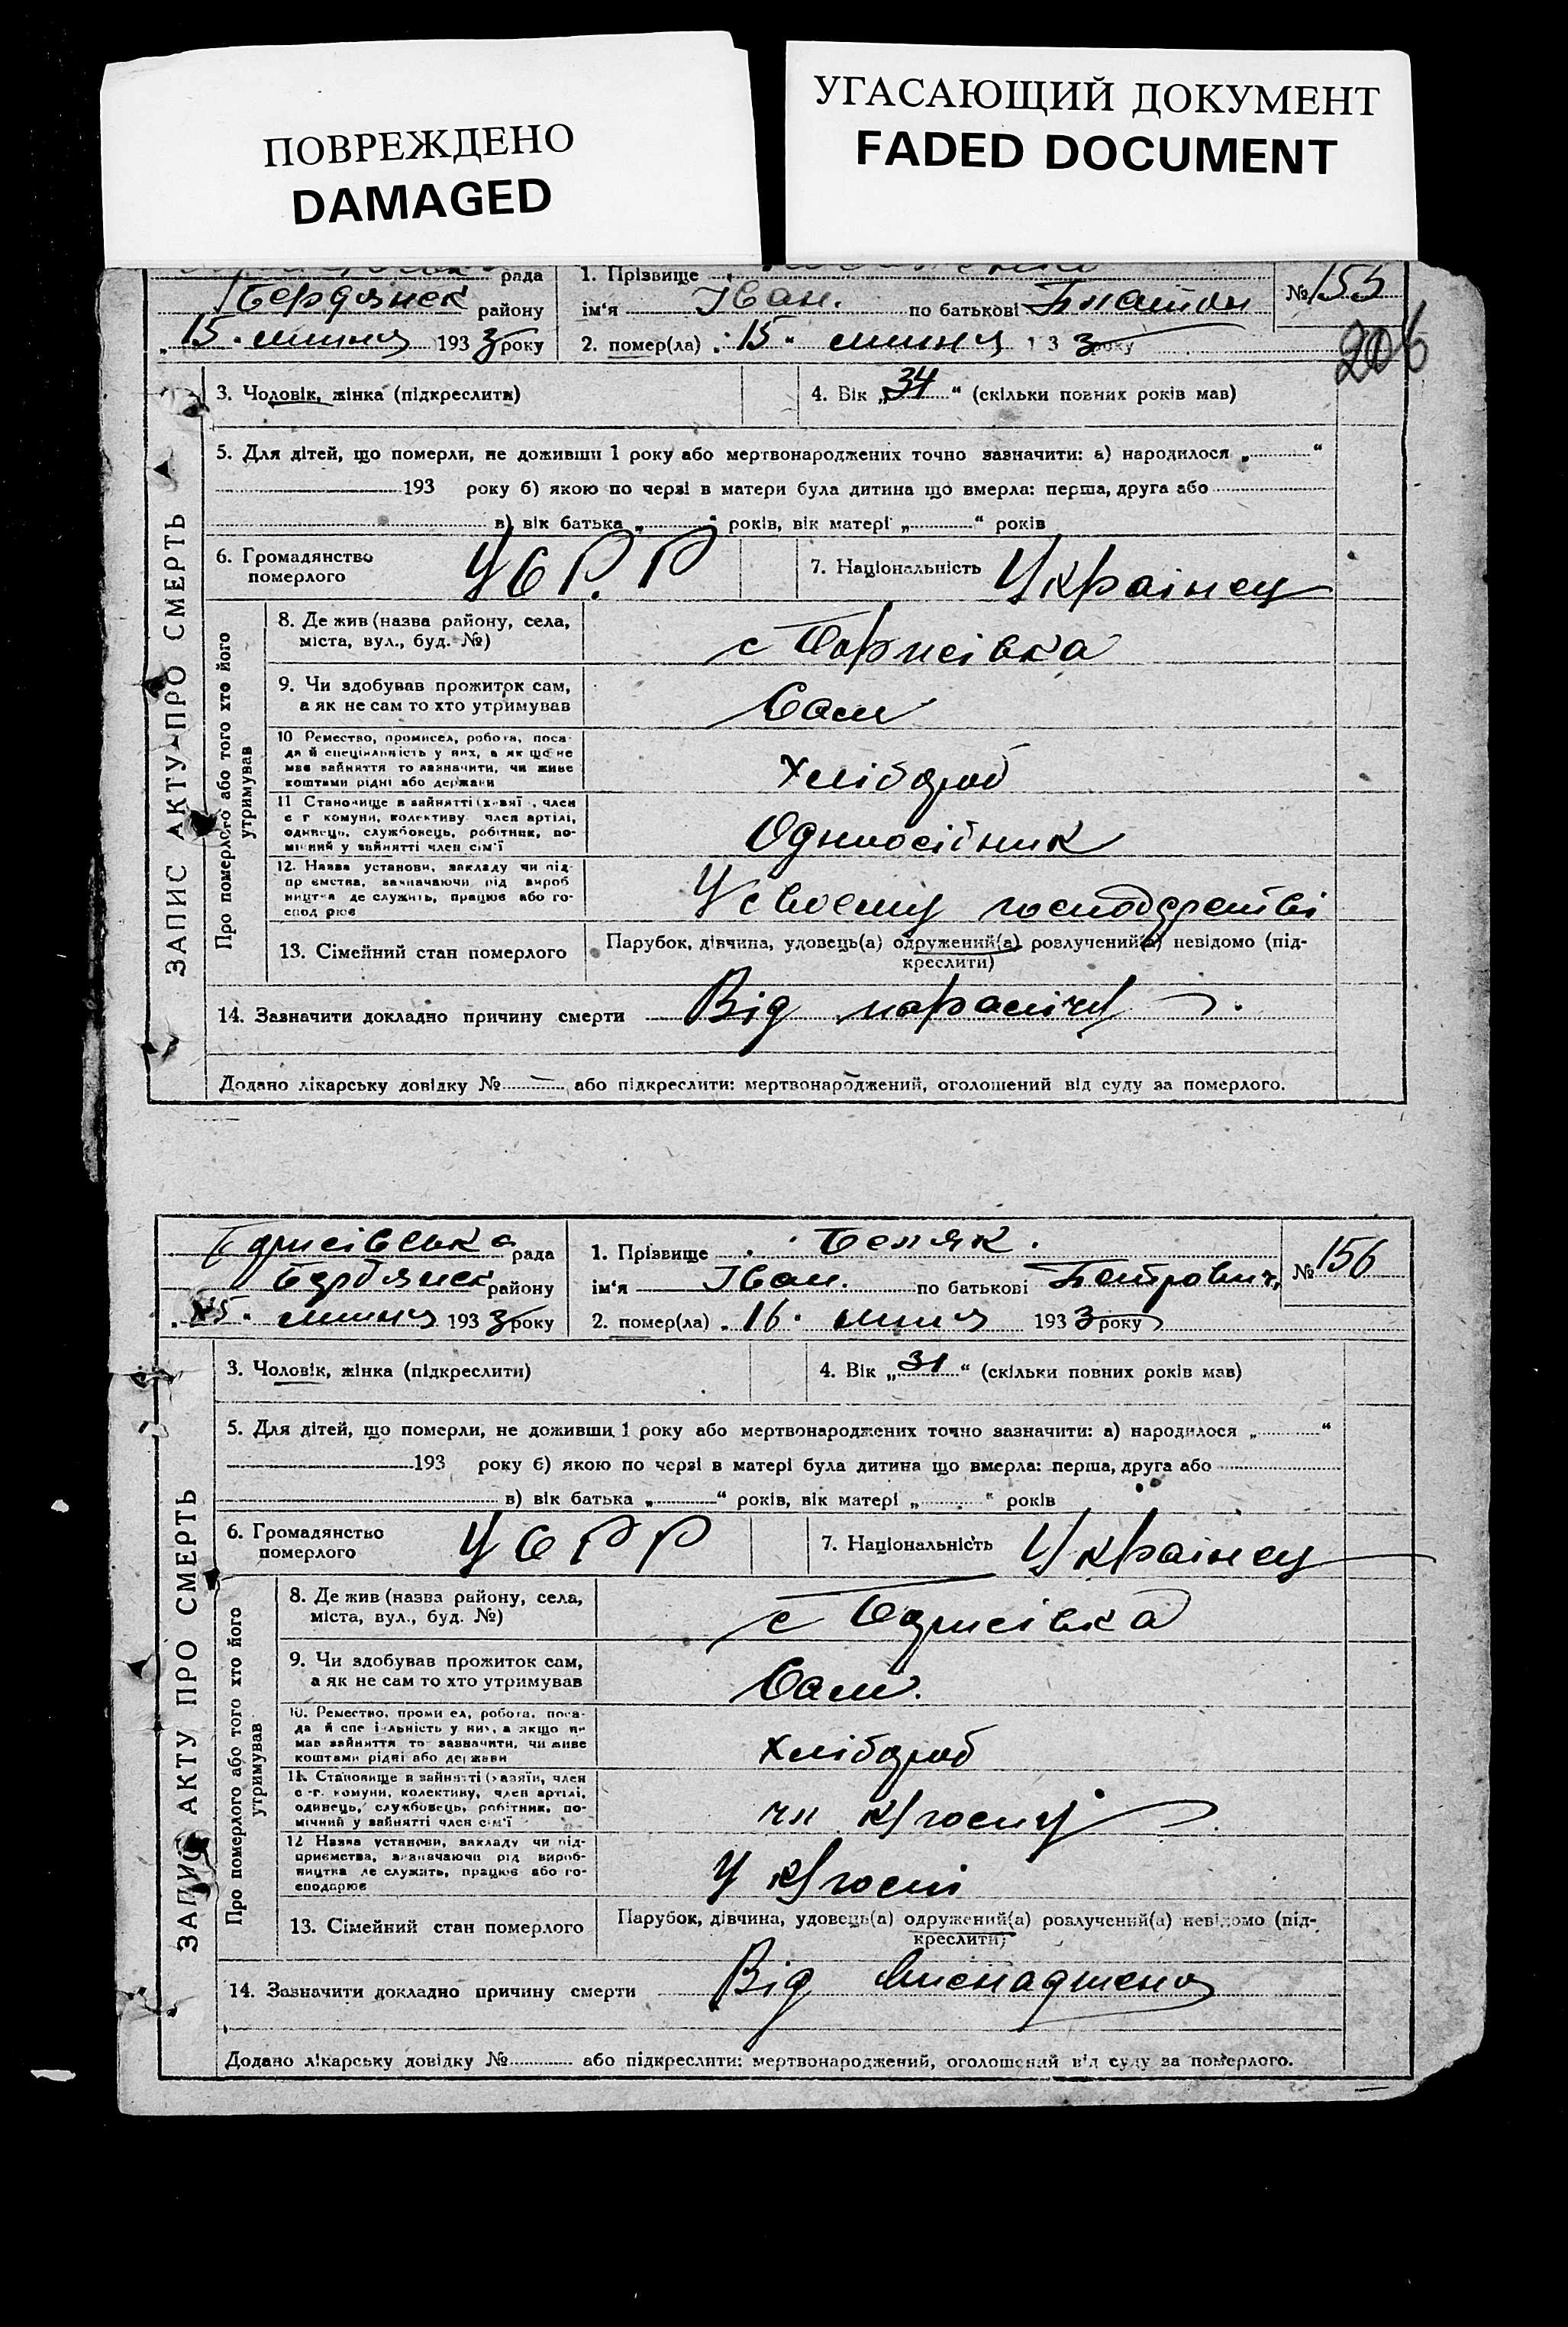 ПОВРЕЖДЕНО
DAMAGED
УГАСАЮЩИЙ ДОКУМЕНТ
FADED DOCUMENT
рада
Бердянск району
„15“ липня 1933 року
1. Прізвище
ім‘я Іван. по батькові Платон
2. помер(ла) „15“ липня 1 3 3 року
№ 155
206
ЗАПИС АКТУ ПРО СМЕРТЬ
3. Чоловік, жінка (підкреслити)
4. Вік „34“ (скільки повних років мав)
5. Для дітей, що померли, не доживши 1 року або мертвонароджених точно зазначити: а) народилося „ “
193 року б) якою по черзі в матери була дитина що вмерла: перша, друга або
в) вік батька „ “ років, вік матері „ “ років
6. Громадянство померлого УСРР
7. Національність Українец
Про померлого або того хто його утримував
8. Де жив (назва району, села,
міста, вул., буд. №)
с Борисівка
9. Чи здобував прожиток сам,
а як не сам то хто утримував
Сам
10 Ремество, промисел, робота, поса-
да й спеціяльність у них, а як що не
має зайняття то зазначити, чи живе
коштами рідні або держави
Хлібороб
11 Становище в зайнятті (хазяї , член
с г комуни, колективу член артілі,
одинець, службовець, робітник, по-
мічний у зайнятті член сім‘ї
Одноосібник
12. Назва установи, закладу чи під-
пр ємства, зазначаючи рід вироб
ництва де служить, працює або го-
спод рює
У своєму господарстві
13. Сімейний стан померлого
Парубок, дівчина, удовець(а) одружений(а) розлучений(а) невідомо (під-
креслити)
14. Зазначити докладно причину смерти Від паралічу
Додано лікарську довідку № — або підкреслити: мертвонароджений, оголошений від суду за померлого.
Борисівська рада
Бердянск району
„15“ липня 1933 року
1. Прізвище Беляк.
ім‘я Іван. по батькові Петрович
2. помер(ла) „16“ липня 1933 року
№ 156
ЗАПИС АКТУ ПРО СМЕРТЬ
3. Чоловік, жінка (підкреслити)
4. Вік „31“ (скільки повних років мав)
5. Для дітей, що померли, не доживши 1 року або мертвонароджених точно зазначити: а) народилося „ “
193 року б) якою по черзі в матері була дитина що вмерла: перша, друга або
в) вік батька „ “ років, вік матері „ “ років
6. Громадянство померлого УСРР
7. Національність Українец
Про померлого або того хто його утримував
8. Де жив (назва району, села,
міста, вул., буд. №)
с Борисівка
9. Чи здобував прожиток сам,
а як не сам то хто утримував
Сам.
10. Ремество, проми ел, робота, поса-
да й спе іяльність у них, а якщо не
має зайняття то зазначити, чи живе
коштами рідні або держави
Хлібороб
11. Становище в зайнятті (хазяїн, член
с -г. комуни, колективу, член артілі,
одинець, службовець, робітник, по-
мічний у зайнятті член сім‘ї
чл к/госпу
12 Назва установи, закладу чи під-
приємства, зазначаючи рід вироб-
ництва де служить, працює або го-
сподарює
У к/госпі
13. Сімейний стан померлого
Парубок, дівчина, удовець(а) одружений(а) розлучений(а) невідомо (під-
креслити)
14. Зазначити докладно причину смерти Від
Додано лікарську довідку № або підкреслити: мертвонароджений, оголошений від суду за померлого.